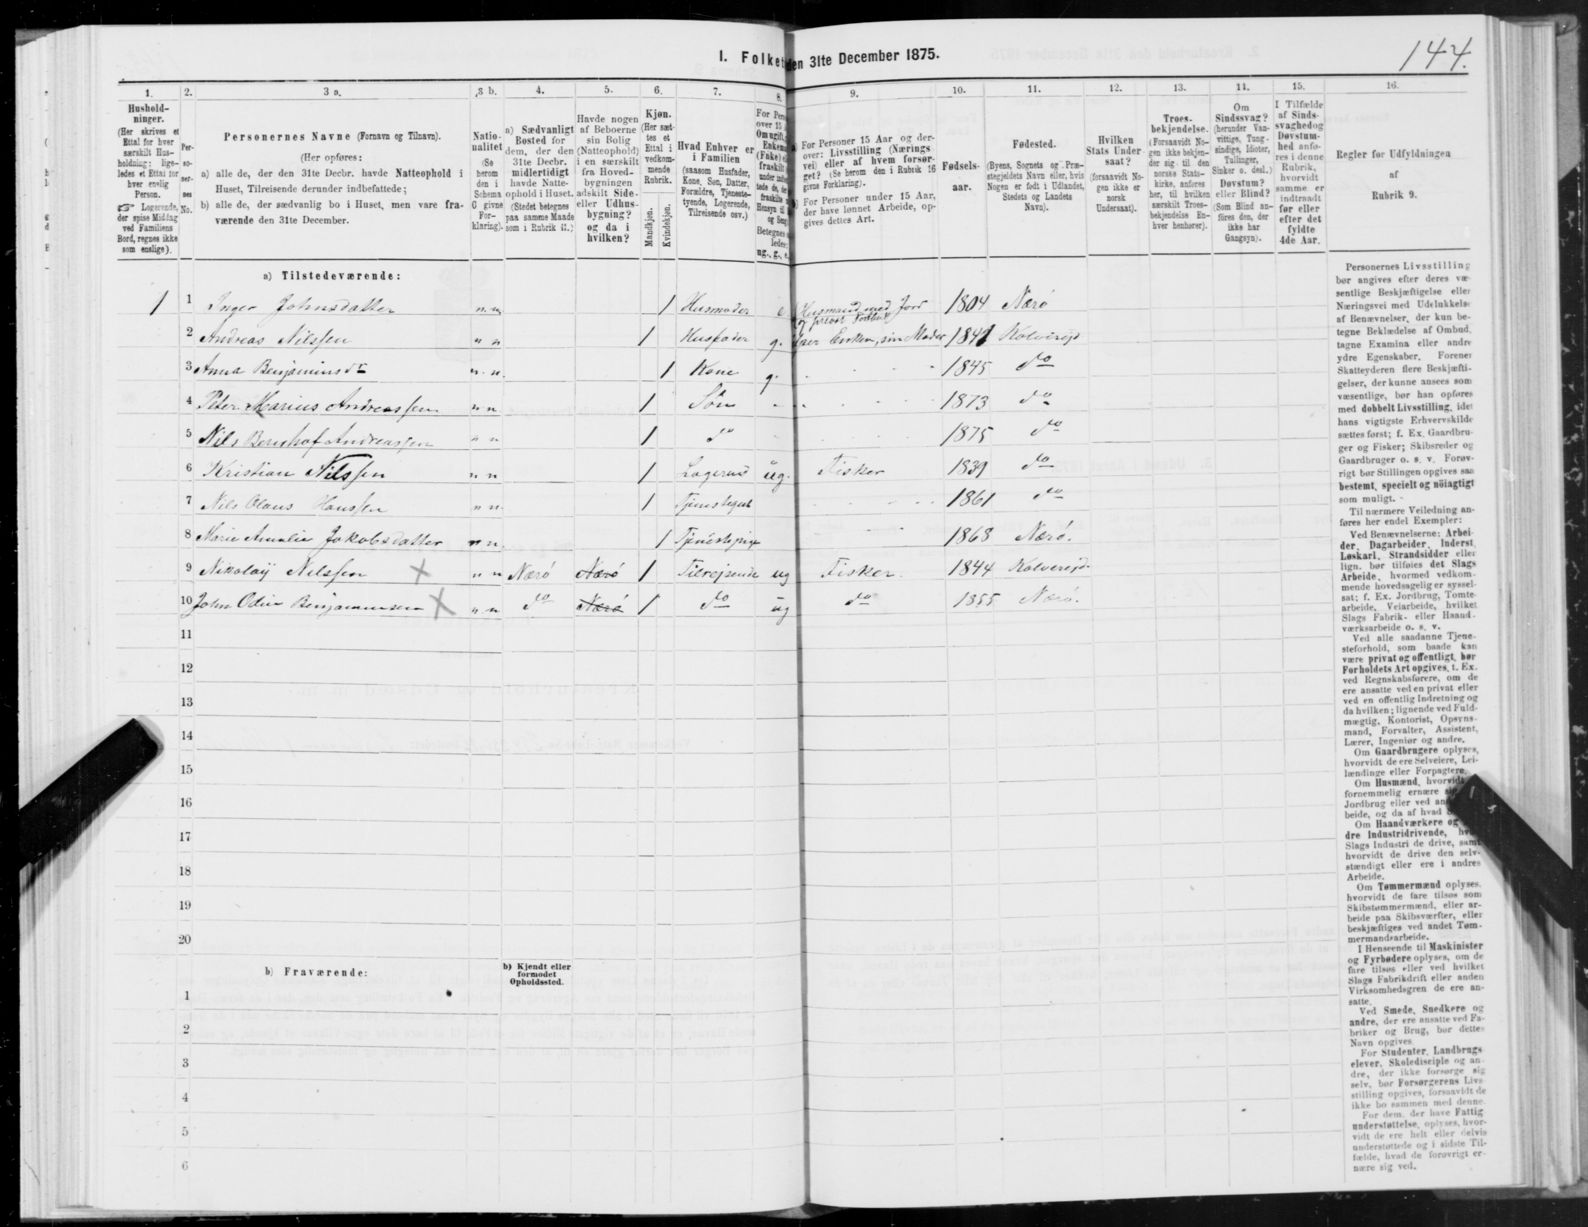 144.
I. Folket
den 31te December 1875.
1.
2.
3 a.
3 b.
4.
5.
6.
7.
8.
9.
10.
11.
12.
13.
14.
15.
16.
Hushold-
ninger.
(Her skrives et
Ettal for hver
særskilt Hus-
holdning; lige-
ledes et Ettal for
hver enslig
Person.
☞ Logerende,
der spise Middag
ved Familiens
Bord, regnes ikke
som enslige).
Per-
so-
ner-
nes
No.
Personernes Navne (Fornavn og Tilnavn).
(Her opføres:
a) alle de, der den 31te Decbr. havde Natteophold i
Huset, Tilreisende derunder indbefattede;
b) alle de, der sædvanlig bo i Huset, men vare fra-
værende den 31te December.
Natio-
nalitet
(Se
herom
den i
Schema
C givne
For-
klaring).
a) Sædvanligt
Bosted for
dem, der den
31te Decbr.
midlertidigt
havde Natte-
ophold i Huset.
(Stedet betegnes
paa samme Maade
som i Rubrik 11.)
Havde nogen
af Beboerne
sin Bolig
(Natteophold)
i en særskilt
fra Hoved-
bygningen
adskilt Side-
eller Udhus-
bygning?
og da i
hvilken?
Kjøn.
(Her sæt-
tes et
Ettal i
vedkom-
mende
Rubrik.
Mandkjøn.
Kvindekjøn.
Hvad Enhver er
i Familien
(saasom Husfader,
Kone, Søn, Datter,
Forældre, Tjeneste-
tyende, Logerende,
Tilreisende osv.)
a) For Personer 15 Aar og der-
over: Livsstilling (Nærings
vei) eller af hvem forsør-
get? (Se herom den i Rubrik 16
givne Forklaring).
b) For Personer under 15 Aar,
der have lønnet Arbeide, op-
gives dettes Art.
Fødsels-
aar.
Fødested.
(Byens, Sognets og Præ-
stegjeldets Navn eller, hvis
Nogen er født i Udlandet,
Stedets og Landets
Navn).
Hvilken
Stats Under
saat?
(forsaavidt No-
gen ikke er
norsk
Undersaat).
Troes-
bekjendelse.
(Forsaavidt No-
gen ikke bekjen-
der sig til den
norske Stats-
kirke, anføres
her, til hvilken
særskilt Troes-
bekjendelse En-
hver henhører).
Om
Sindssvag?
(herunder Van-
vittige, Tung-
sindige, Idioter,
Tullinger,
Sinker o. desl.)
Døvstum?
eller Blind?
(Som Blind an-
føres den, der
ikke har
Gangsyn).
I Tilfælde
af Sinds-
svaghed og
Døvstum-
hed anfø-
res i denne
Rubrik,
hvorvidt
samme er
indtraadt
før eller
efter det
fyldte
4de Aar.
Regler for Udfyldningen
af
Rubrik 9.
a) Tilstedeværende:
1 1 Inger Johnsdatter n.n. 1 Husmoder e Husmand med Jord 1804 Nærø
2 Andreas Nilssen n n 1 Husfader g. Enken, sin Moder 1841 Kolvereid
3 Anna Benjaminsdr n. n. 1 Kone g. 1845 do
4 Peter Marius Andreassen n n 1 Søn 1873 do
5 Nils Bernhof Andreassen n n 1 do 1875 do
6 Kristian Nilssen n n 1 Logerend ug. Fisker 1839 do
7 Nils Olaus Hanssen n n. 1 Tjenstegut 1861 do
8 Marie Amalie Jakobsdatter n n. 1 Tjenestepige 1868 Nærø.
9 Nikolaij Nilssen X n n Nærø Nærø 1 Tilrejsende ug Fisker. 1844 Kolvereid
10 John Odin Benjaminsen X n n do Nærø 1 do ug do 1855 Nærø.
11
12
13
14
15
16
17
18
19
20
b) Fraværende:
b) Kjendt eller
formodet
Opholdssted.
1
2
3
4
5
6
Personernes Livsstilling
bør angives efter deres væ-
sentlige Beskjæftigelse eller
Næringsvei med Udelukkelse
af Benævnelser, der kun be-
tegne Beklædelse af Ombud,
tagne Examina eller andre
ydre Egenskaber. Forener
Skatteyderen flere Beskjæfti-
gelser, der kunne ansees som
væsentlige, bør han opføres
med dobbelt Livsstilling, idet
hans vigtigste Erhvervskilde
sættes først; f. Ex. Gaardbru-
ger og Fisker; Skibsreder og
Gaardbruger o. s. v. Forøv-
rigt bør Stillingen opgives saa
bestemt, specielt og nöiagtigt
som muligt.
Til nærmere Veiledning an-
føres her endel Exempler:
Ved Benævnelserne: Arbei-
der, Dagarbeider, Inderst,
Løskarl, Strandsidder eller
lign. bør tilføies det Slags
Arbeide, hvormed vedkom-
mende hovedsagelig er syssel-
sat; f. Ex. Jordbrug, Tomte-
arbeide, Veiarbeide, hvilket
Slags Fabrik- eller Haand-
værksarbeide o. s. v.
Ved alle saadanne Tjene-
steforhold, som baade kan
være privat og offentligt, bør
Forholdets Art opgives, f. Ex.
ved Regnskabsførere, om de
ere ansatte ved en privat eller
ved en offentlig Indretning og
da hvilken; lignende ved Fuld-
mægtig, Kontorist, Opsyns-
mand, Forvalter, Assistent,
Lærer, Ingeniør og andre.
Om Gaardbrugere oplyses,
hvorvidt de ere Selveiere, Lei-
lændinge eller Forpagtere.
Om Husmænd, hvorvidt
fornemmelig ernære
Jordbrug eller ved
beide, og da af hvad
Om Haandværkere og
dre Industridrivende,
Slags Industri de drive, samt
hvorvidt de drive den selv-
stændigt eller ere i andres
Arbeide.
Om Tømmermænd oplyses,
hvorvidt de fare tilsøs som
Skibstømmermænd, eller ar-
beide paa Skibsværfter, eller
beskjæftiges ved andet Tøm-
mermandsarbeide.
I Henseende til Maskinister
og Fyrbødere oplyses, om de
fare tilsøs eller ved hvilket
Slags Fabrikdrift eller anden
Virksomhedsgren de ere an-
satte.
Ved Smede, Snedkere og
andre, der ere ansatte ved Fa-
briker og Brug, bør dettes
Navn opgives.
For Studenter, Landbrugs
elever, Skoledisciple og an-
dre, der ikke forsørge sig
selv, bør Forsørgerens Livs-
stilling opgives, forsaavidt de
ikke bo sammen med denne.
For dem, der have Fattig
understøttelse, oplyses, hvor-
vidt de ere helt eller delvis
understøttede og i sidste Til-
fælde, hvad de forøvrigt er-
nære sig ved.